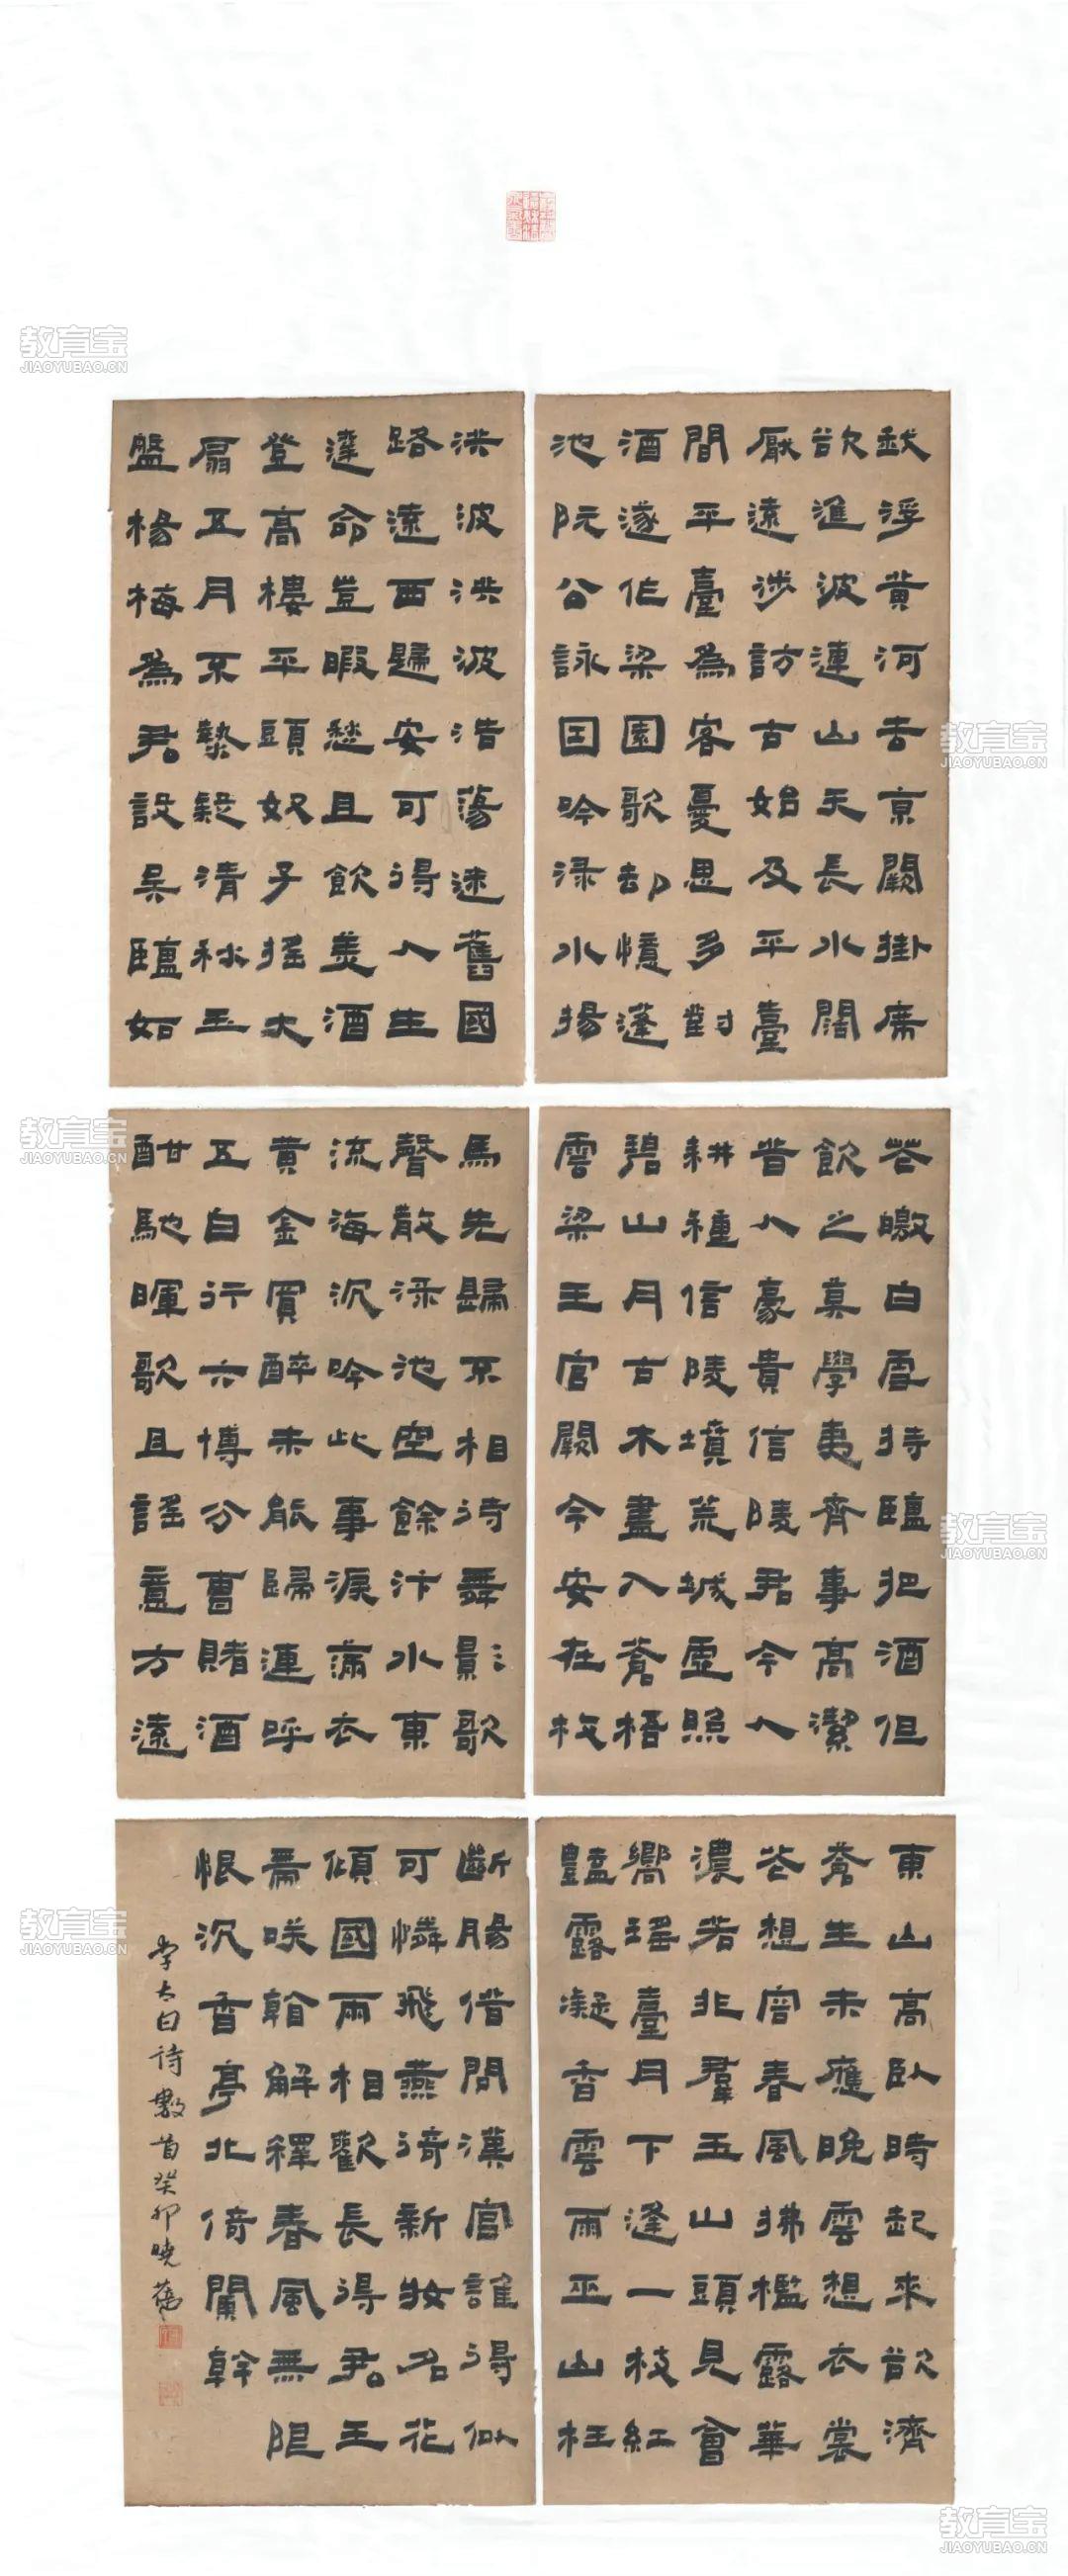 我浮黃河去京闕掛席
欲進波連山天長水闊
厭遠涉訪古始及平臺
間平臺為客憂思多對
酒遂作梁園歌却憶蓬
池阮公詠因吟渌水揚
洪波洪波浩蕩迷舊國
路遠西歸安可得人生
達命豈暇愁且飲美酒
登高樓平頭奴子搖大
扇五月不熱疑清秋玉
盤楊梅為君設吳鹽如
花皦白雪持鹽把酒但
飲之莫學夷齊事高潔
昔人豪貴信陵君今人
耕種信陵墳荒城虛照
碧山月古木盡入蒼梧
雲梁王宮闕今安在枚
馬先歸不相待舞影歌
聲散渌池空餘汴水東
流海沉吟此事淚滿衣
黃金買醉未能歸連呼
五白行六博分曹賭酒
酣馳暉歌且謠意方遠
東山高臥時起來欲濟
蒼生未應晚雲想衣裳
花想容春風拂檻露華
濃若非羣玉山頭見會
嚮瑤臺月下逢一枝紅
豔露凝香雲雨巫山枉
斷腸借問漢宮誰得似
可憐飛燕倚新妝名花
傾國兩相歡長得君王
帶咲看解釋春風無限
恨沉香亭北倚闌幹
李太白詩數首癸卯曉
教育宝
JIAOYUBAO.CN
教育宝
JIAOYUBAO.CN
教育宝
JIAOYUBAO.CN
教育宝
JIAOYUBAO.CN
教育宝
JIAOYUBAO.CN
教育宝
JIAOYUBAO.CN